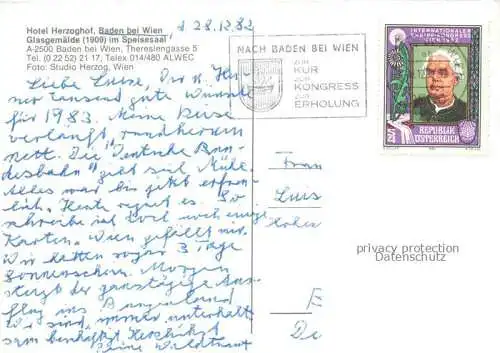 Hotel Herzoghof, Baden bei Wien
Glasgemälde (1909) im Speisesaal
A-2500 Baden bei Wien, Theresiengasse 5
Tel. (0 22 52) 21 17, Telex 014/480 ALWEC
Foto: Studio Herzog, Wien
28.12.82
NACH BADEN BEI WIEN
ZUR
KUR
ZUM
KONGRESS
ZUR
ERHOLUNG
INTERNATIONALER
REPUBLIK
ÖSTERREICH
Liebe Luise, Dir u.
tausend gute Wünsche
für 1983. Meine Reise
verläuft, rundherum
nett. Die "Deutsche Bun
desbahn" gibt sich Mühe.
Alles war bis jetzt erfreu
lich. Heute regnet es. So
schreibe ich doch noch einige
Karten. Wien gefällt mir.
Wir hatten sogar 3 Tage
Sonnenschein. Morgen
steigt der ganztägige Aus
flug ins Burgenland
Wir sind immer unterhalt
sam beschäftigt. Herzlichst
Deine Waldtraut
Frau
Luis
privacy protection
Datenschutz